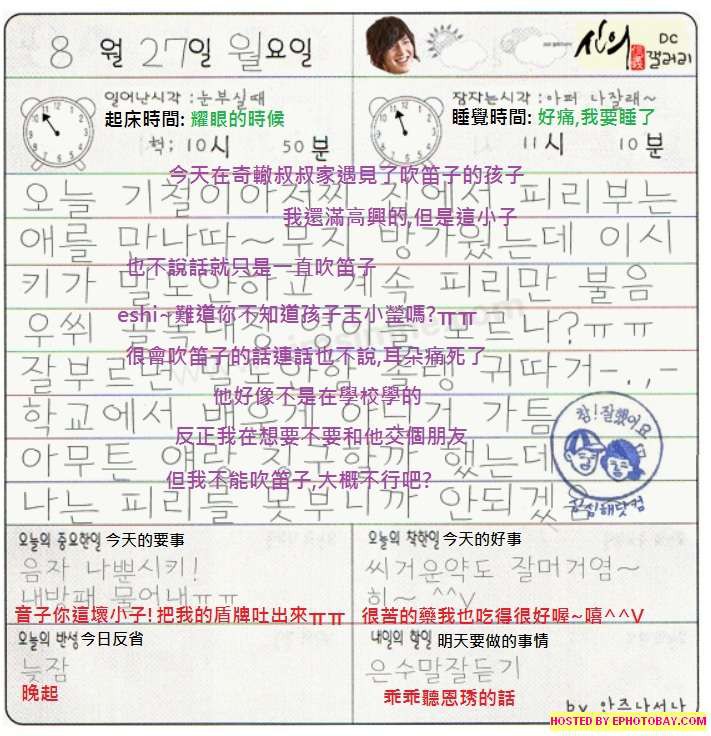 8 월 27일 월요일
신의
信義
DC
갤러리
일어난시각 : 눈부실때
起床時間: 耀眼的時候
혁; 10시 50분
잠자는시각 : 아퍼 나잘래~
睡覺時間: 好痛,我要睡了
11시 10분
今天在奇轍叔叔家遇見了吹笛子的孩子
오늘 기철이아저찌 집에서 피리부는
我還滿高興的,但是這小子
애를 마나따~무지 방가웠는데 이시
也不說話就只是一直吹笛子
키가 말도안하고 계속 피리만 불음
eshi~難道你不知道孩子王小瑩嗎?ㅠㅠ
우쒸 골목대장 모르나?ㅠㅠ
很會吹笛子的話連話也不說,耳朵痛死了
잘부르면 말도안함 졸랭 귀따거-.,-
他好像不是在學校學的
학교에서 배운게 아닌거 가틈
反正我在想要不要和他交個朋友
아무튼 얘랑 칭구할까 했는데
但我不能吹笛子,大概不行吧?
나는 피리를 못부니까 안되겠음
참! 잘했어요
오늘의 중요한일 今天的要事
음자 나뿐시키!
내방패 물어내ㅠㅠ
音子你這壞小子! 把我的盾牌吐出來ㅠㅠ
오늘의 착한일 今天的好事
씨거운약도 잘머거염~
히~ ^^V
很苦的藥我也吃得很好喔~嘻^^V
오늘의 반성 今日反省
늦잠
晚起
내일의 할일 明天要做的事情
은수말잘듣기
乖乖聽恩琇的話
by 안주나서나
HOSTED BY EPHOTOBAY.COM